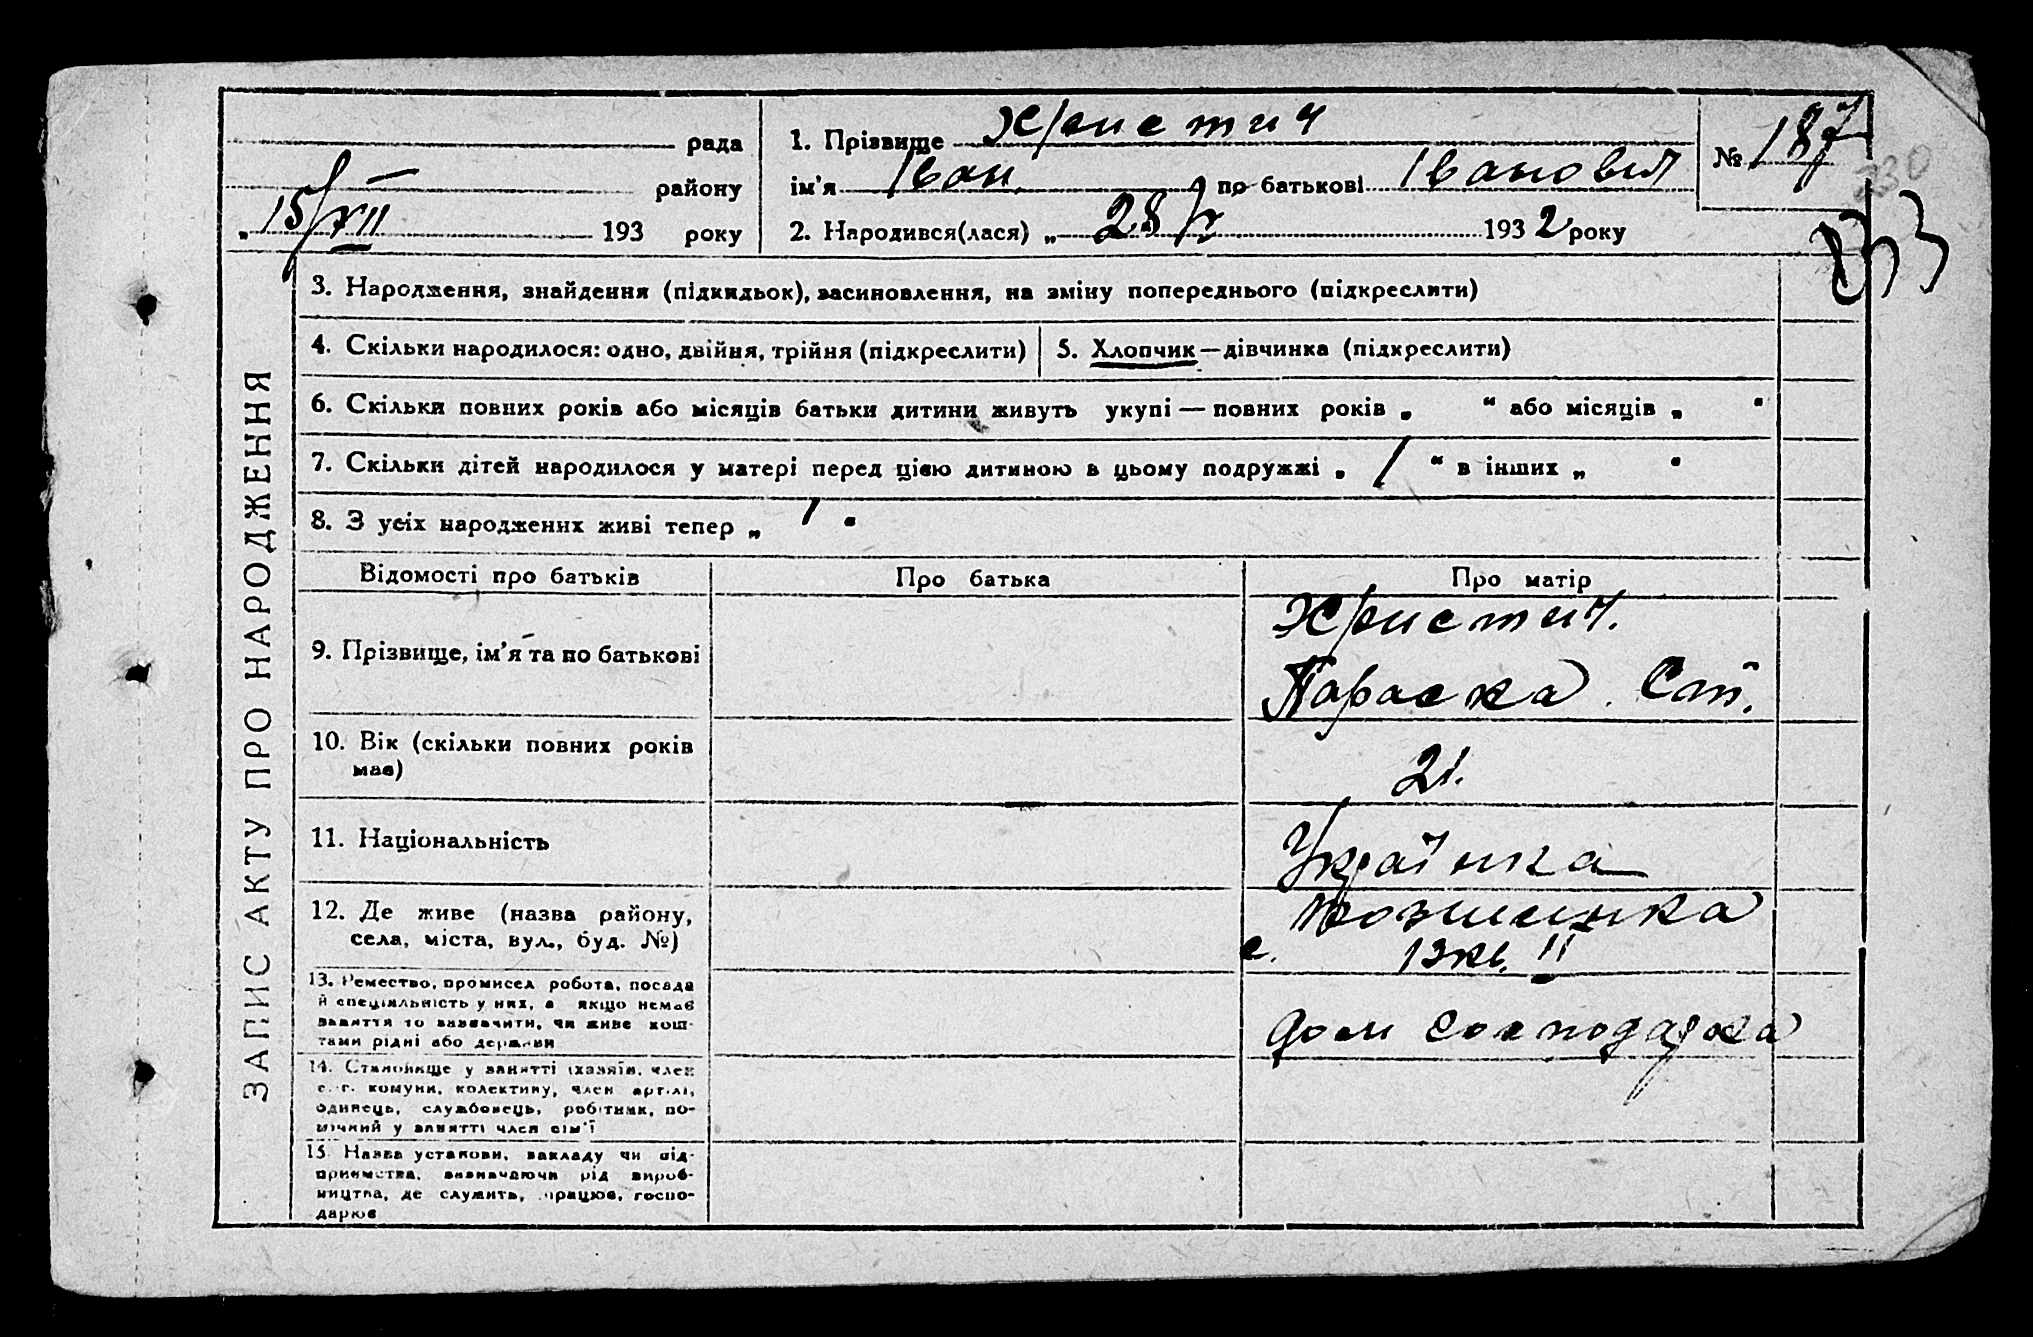 рада
району
„ 15/XII 193 року
1. Прізвище Христич
ім'я Іван по батькові Іванович
2. Народився(лася) „ 28/X 1932 року
№ 187
230
233
ЗАПИС АКТУ ПРО НАРОДЖЕННЯ
3. Народження, знайдення (підкидьок), засиновлення, на зміну попереднього (підкреслити)
4. Скільки народилося: одно, двійня, трійня (підкреслити)
5. Хлопчик—дівчинка (підкреслити)
6. Скільки повних років або місяців батьки дитини живуть укупі — повних років „ “ або місяців „ “
7. Скільки дітей народилося у матері перед цією дитиною в цьому подружжі „ 1 “ в інших „ “
8. З усіх народжених живі тепер „ 1 “
Відомості про батьків
Про батька
Про матір
9. Прізвище, ім'я та по батькові
Христич.
Параска Ст.
10. Вік (скільки повних років
має)
21.
11. Національність
Українка
12. Де живе (назва району,
села, міста, вул., буд. №)
с.
13. Ремество, промисел робота, посада
й спеціяльність у них, а якщо немає
заняття то зазначити, чи живе кош-
тами рідні або держави
дом господарка
14. Становище у занятті (хазяїн, член
с.-г. комуни, колективу, член артілі,
одинець, службовець, робітник, по-
мічний у занятті член сім'ї
15. Назва установи, закладу чи під-
приємства, визначаючи рід вироб-
ництва, де служить, працює, госпо-
дарює